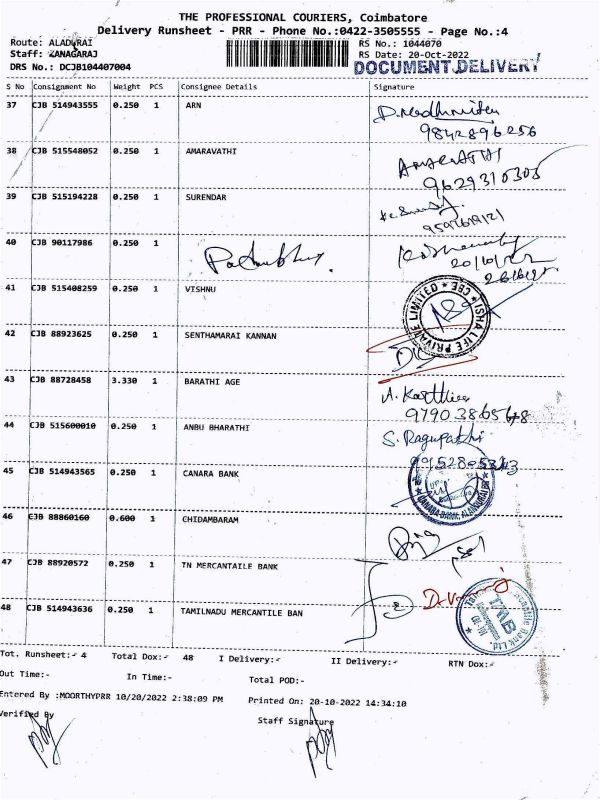 THE PROFESSIONAL COURIERS, Coimbatore
Delivery Runsheet - PRR - Phone No.:0422-3505555 - Page No.:4
Route: ALADURAI
RS No.: 1044070
Staff: KANAGARAJ
RS Date: 20-Oct-2022
DRS No.: DCJB104407004
DOCUMENT.DELIVERY
S No Consignment No Weight PCS Consignee Details Signature
37 CJB 514943555 0.250 1 ARN
9842896256
38 CJB 515548052 0.250 1 AMARAVATHI
AMARAVATHI
9629310303
39 CJB 515194228 0.250 1 SURENDAR
40 CJB 90117986 0.250 1
41 CJB 515408259 0.250 1 VISHNU
ISHA LIFE PRIVATE LIMITED ★ CBE ★
42 CJB 88923625 0.250 1 SENTHAMARAI KANNAN
43 CJB 88728458 3.330 1 BARATHI AGE
A. Karthick
44 CJB 515600010 0.250 1 ANBU BHARATHI
S. Ragupathi
45 CJB 514943565 0.250 1 CANARA BANK
CANARA BANK, ALANDURAI
46 CJB 88860160 0.600 1 CHIDAMBARAM
47 CJB 88920572 0.250 1 TN MERCANTAILE BANK
48 CJB 514943636 0.250 1 TAMILNADU MERCANTILE BAN
TMB
Tot. Runsheet:- 4 Total Dox:- 48 I Delivery:- II Delivery:- RTN Dox:-
Out Time:- In Time:- Total POD:-
Entered By :MOORTHYPRR 10/20/2022 2:38:09 PM Printed On: 20-10-2022 14:34:10
Verified By Staff Signature